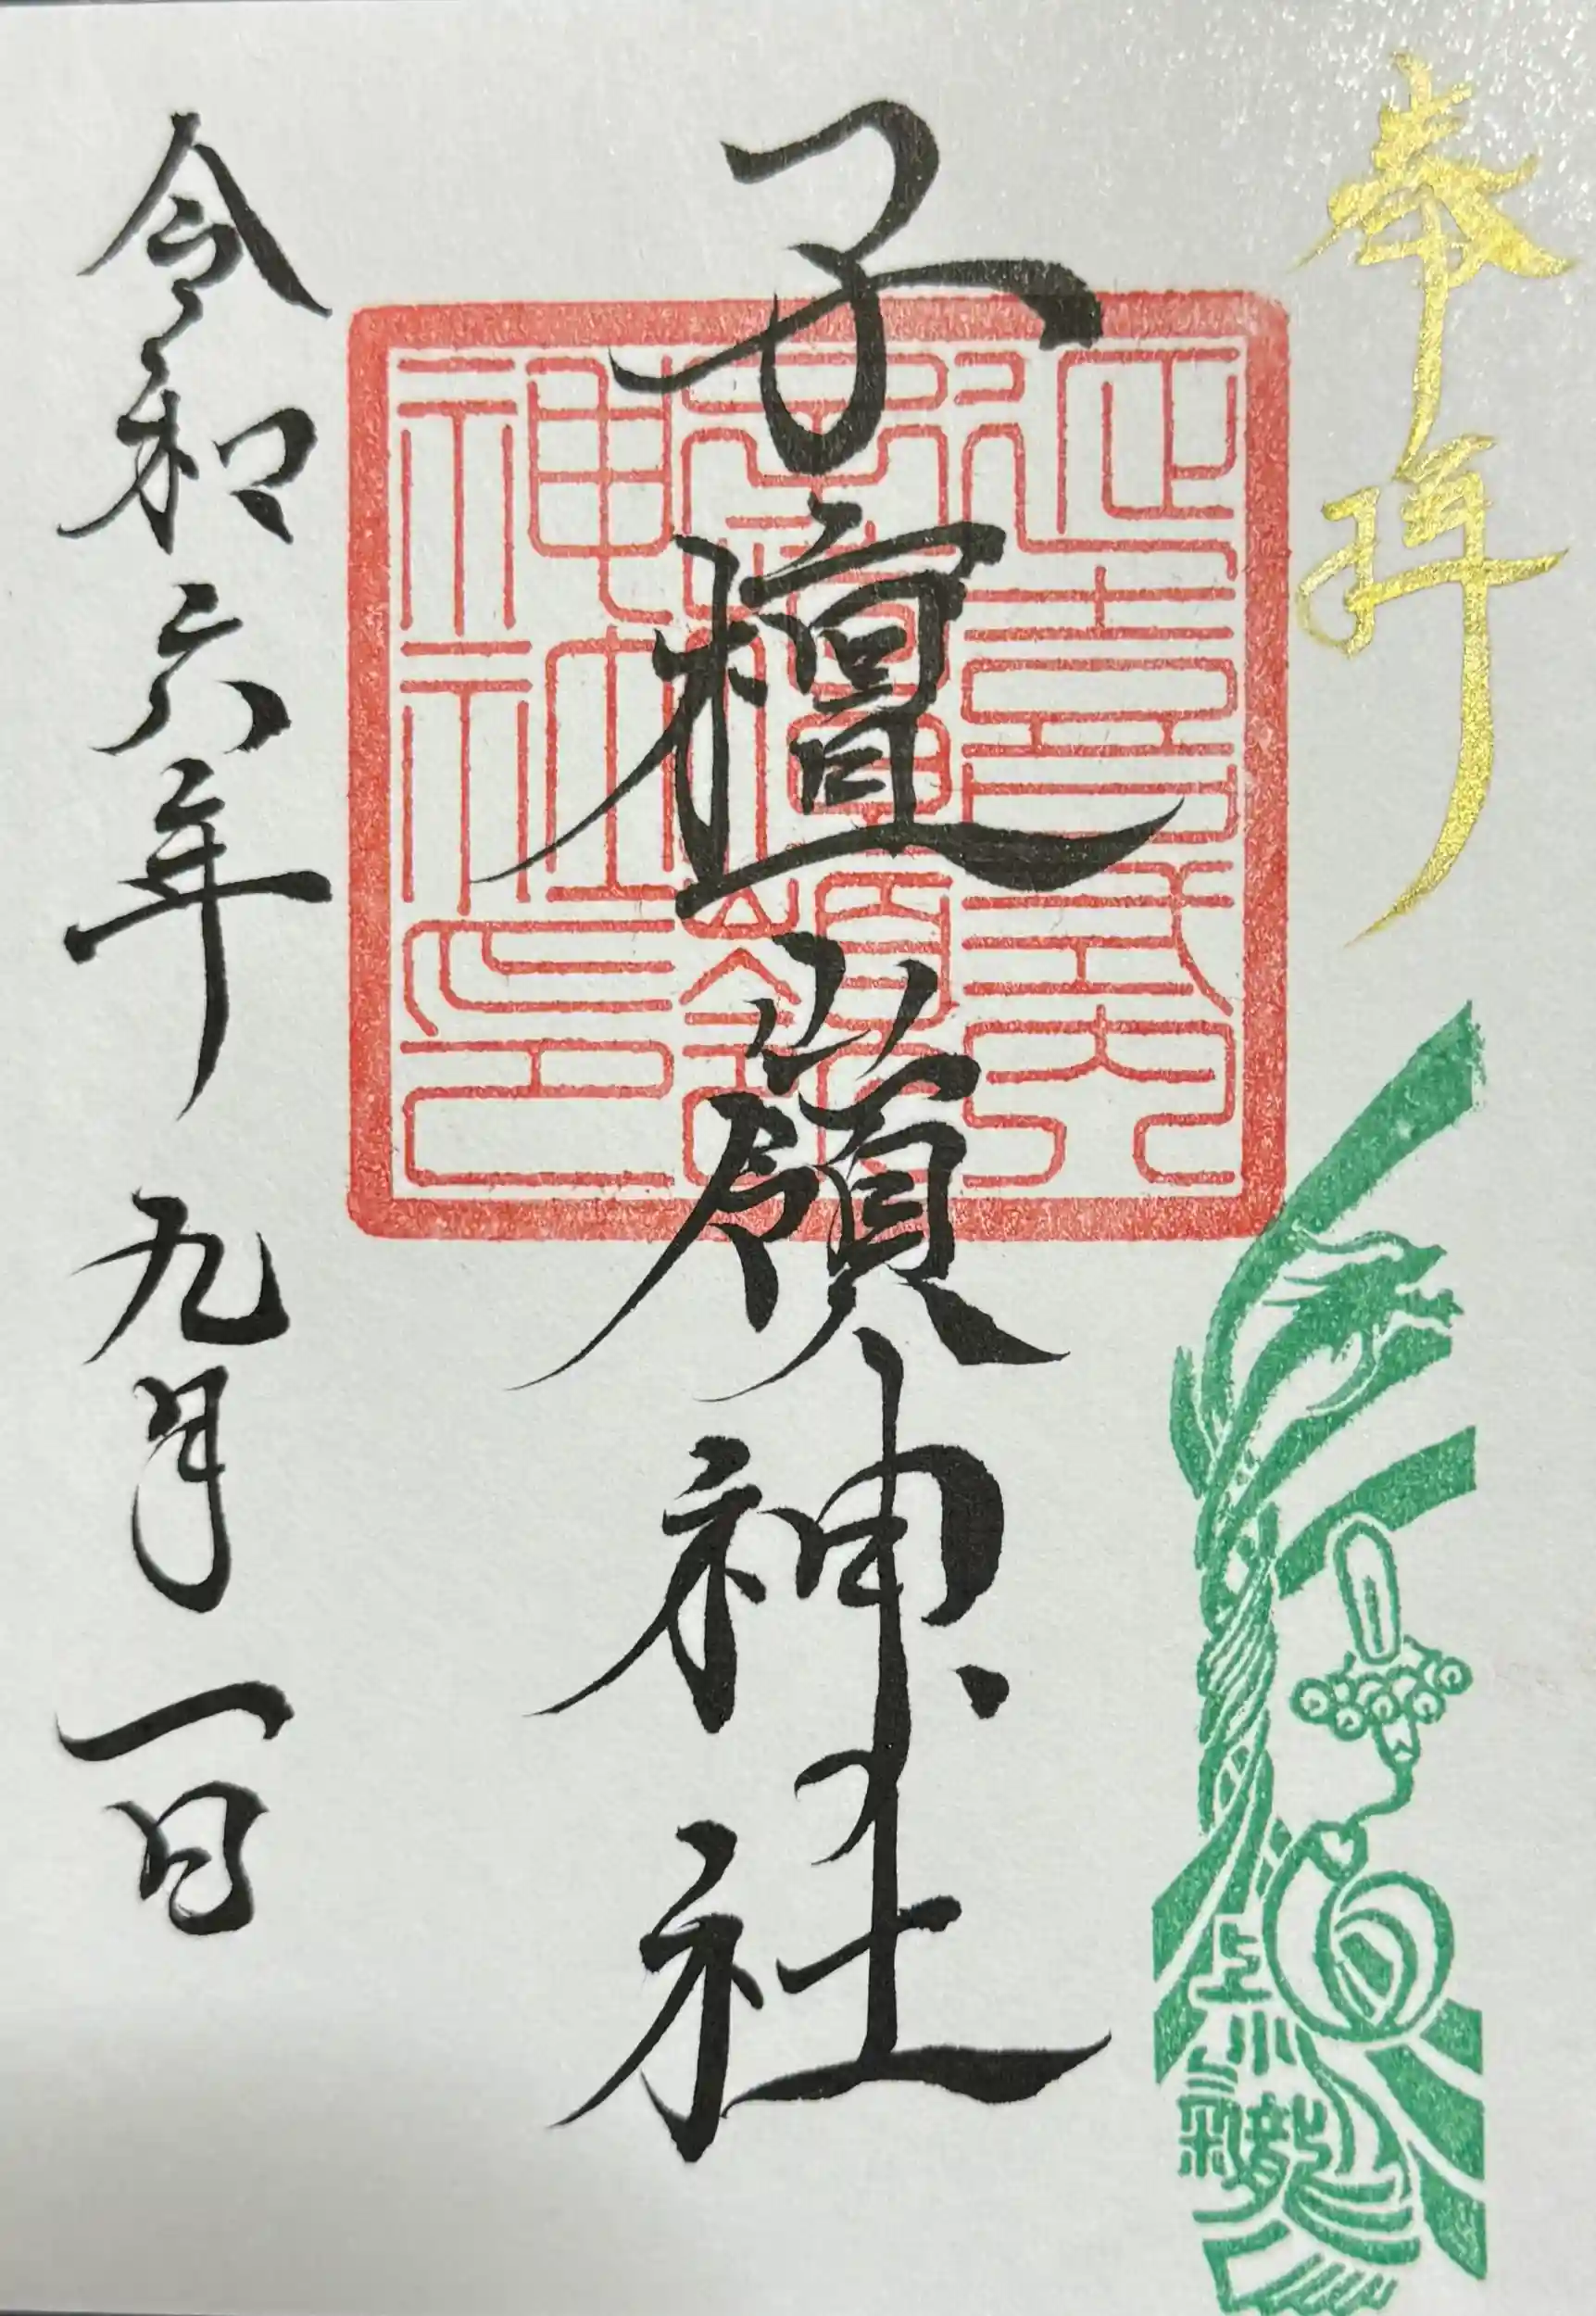 奉拝
延喜式内
子檀嶺
神社印
子檀嶺神社
令和六年 九月一日